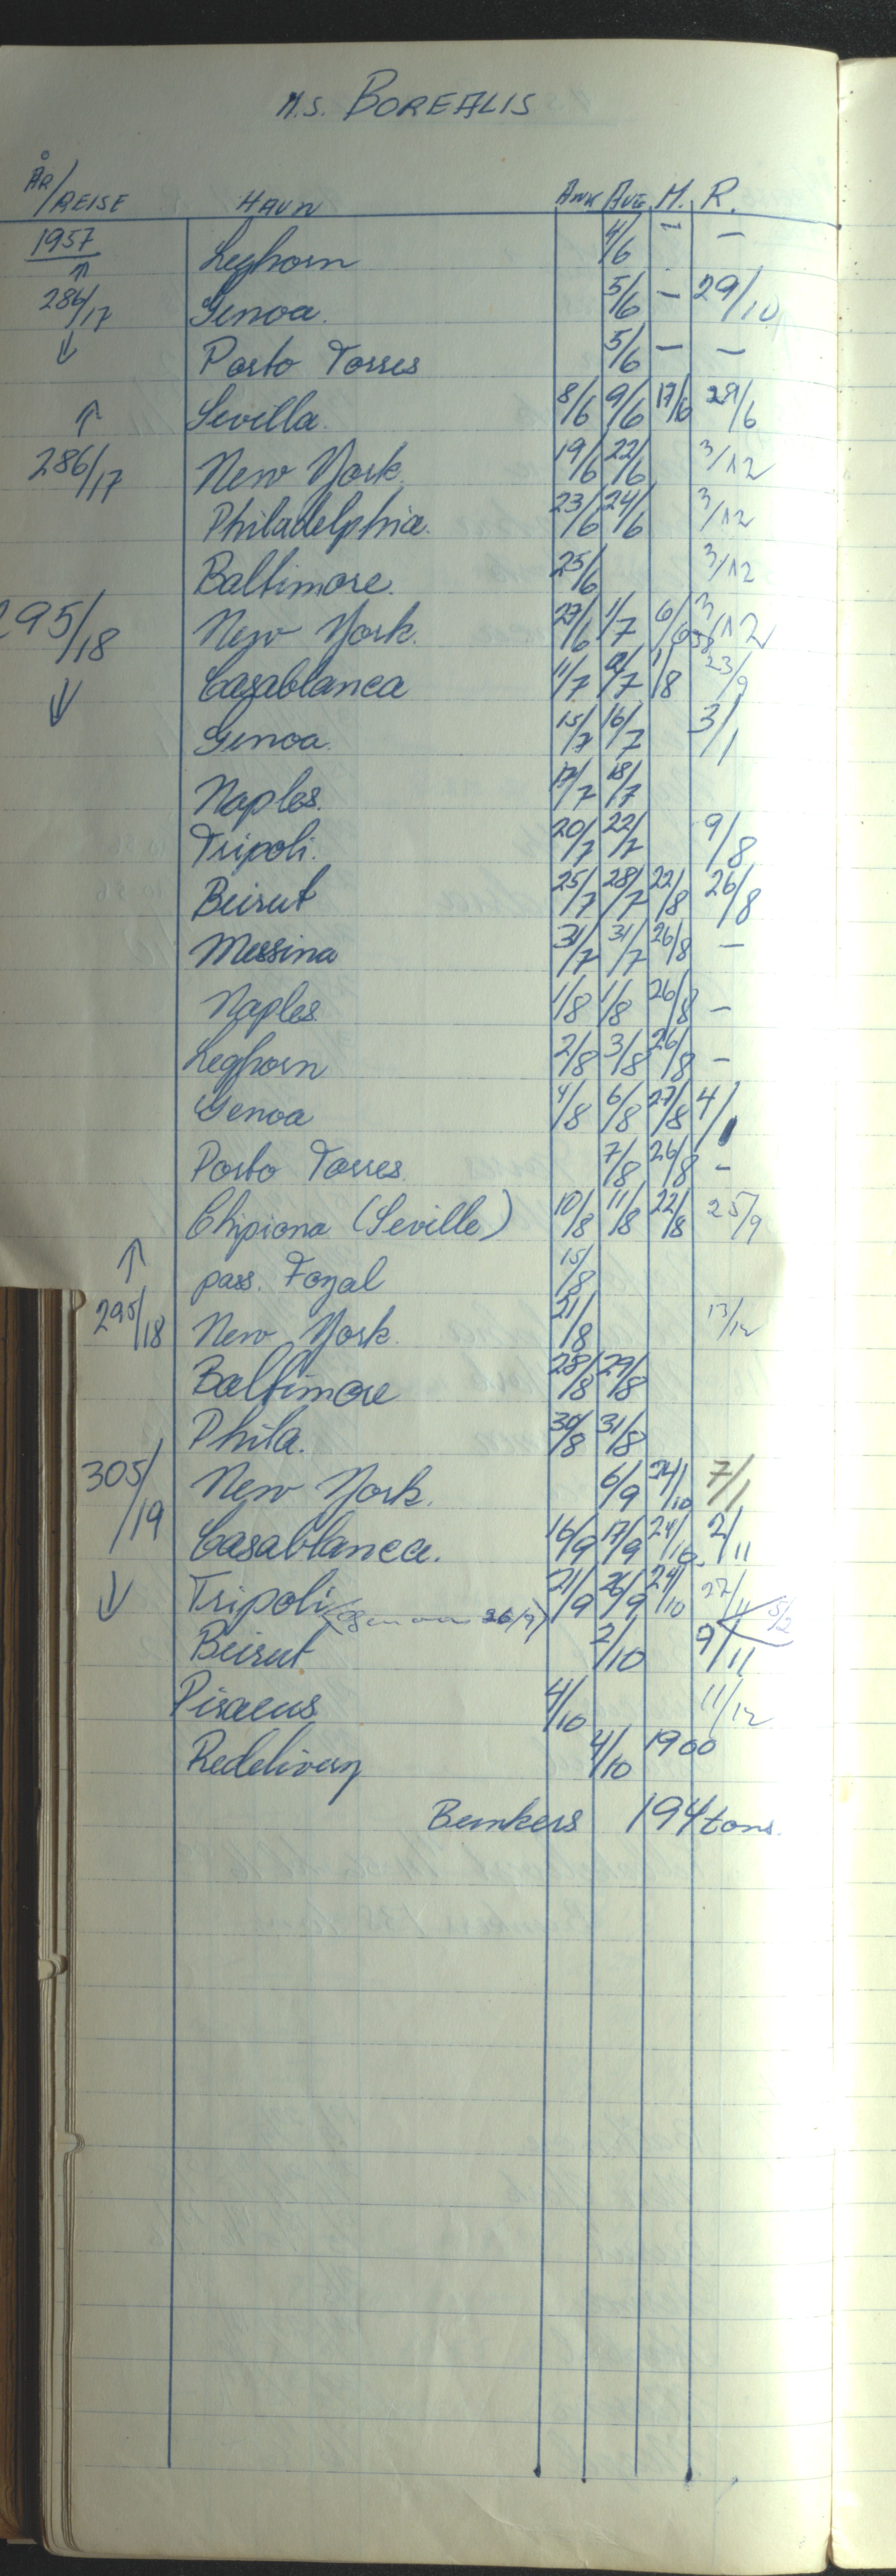 M.S. BOREALIS
ÅR/REISE HAVN ANK AVG. M. R.
1957 Leghorn 4/6 — —
↑ 286/17 Genoa. 5/6 — 29/10
↓ Porto Torres 5/6 — —
↑ Sevilla. 8/6 9/6 17/6 29/6
286/17 New York. 19/6 22/6 3/12
Philadelphia. 23/6 24/6 3/12
Baltimore. 25/6 3/12
295/18 New York. 27/6 1/7 6/6 58 3/12
↓ Casablanca 11/7 /7 1/8 23/9
Genoa. 15/7 16/7 3/1
Naples. 17/7 18/7
Tripoli. 20/7 22/7 9/8
Beirut 25/7 28/7 22/8 26/8
Messina 31/7 31/7 26/8 —
Naples 1/8 1/8 26/8 —
Leghorn 2/8 3/8 26/8 —
Genoa 4/8 6/8 27/8 4/1
Porto Torres 7/8 26/8 —
Chipiona (Seville) 10/8 11/8 22/8 25/9
↑ pass. Fayal 15/8
295/18 New York. 21/8 13/12
Baltimore 28/8 29/8
Phila. 30/8 31/8
305/19 New York. 6/9 24/10 7/1
Casablanca. 16/9 17/9 24/10. 2/11
↓ Tripoli (Genoa 26/9) 21/9 26/9 24/10 27/11 5/2
Beirut 2/10 9/11
Piraeus 4/10 11/12
Redelivery 4/10 1900
Bunkers 194 tons.